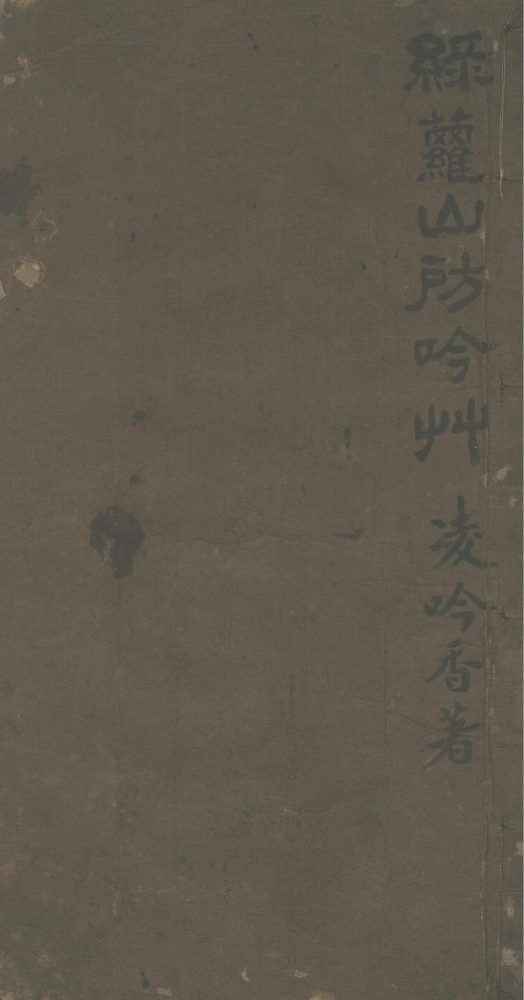 綠蘿山房吟艸 凌吟香著